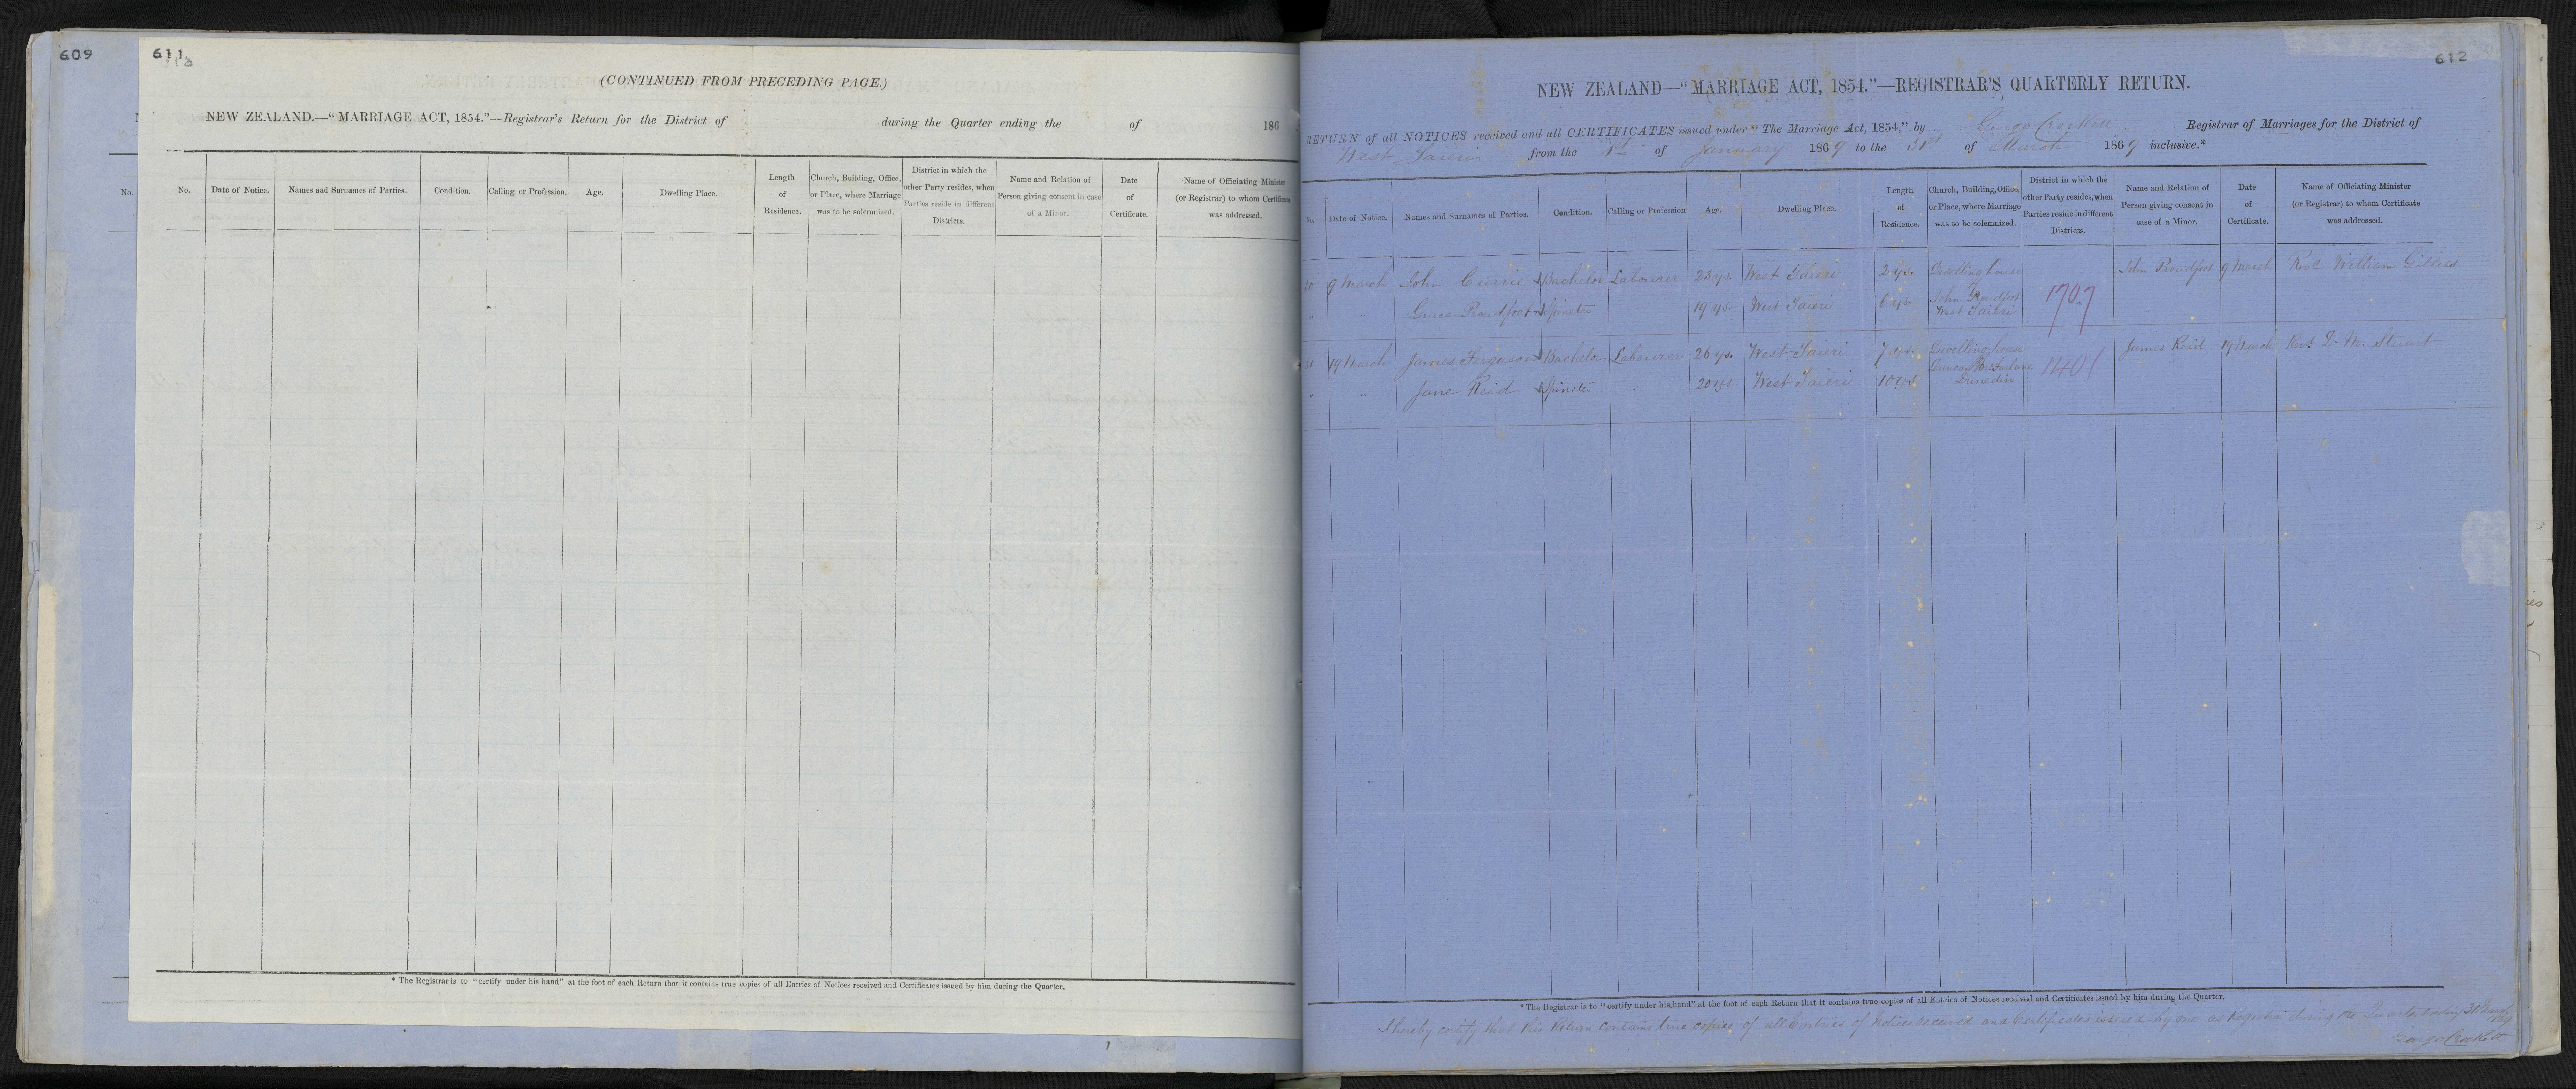 609
611
(CONTINUED FROM PRECEDING PAGE.)
NEW ZEALAND.—“MARRIAGE ACT, 1854.”—Registrar's Return for the District of during the Quarter ending the of 186
No.
No. Date of Notice. Names and Surnames of Parties. Condition. Calling or Profession. Age. Dwelling Place. Length of Residence. Church, Building, Office, or Place, where Marriage was to be solemnized. District in which the other Party resides, when Parties reside in different Districts. Name and Relation of Person giving consent in case of a Minor. Date of Certificate. Name of Officiating Minister (or Registrar) to whom Certificate was addressed.
* The Registrar is to “certify under his hand” at the foot of each Return that it contains true copies of all Entries of Notices received and Certificates issued by him during the Quarter.
612
NEW ZEALAND—“MARRIAGE ACT, 1854.”—REGISTRAR'S QUARTERLY RETURN.
RETURN of all NOTICES received and all CERTIFICATES issued under “The Marriage Act, 1854,” by George Crockett Registrar of Marriages for the District of
West Taieri from the 1st of January 1869 to the 31st of March 1869 inclusive.*
No. Date of Notice. Names and Surnames of Parties. Condition. Calling or Profession Age. Dwelling Place. Length of Residence. Church, Building, Office, or Place, where Marriage was to be solemnized. District in which the other Party resides, when Parties reside in different Districts. Name and Relation of Person giving consent in case of a Minor. Date of Certificate. Name of Officiating Minister (or Registrar) to whom Certificate was addressed.
9 March John Currie Bachelor Labourer 23 ys. West Taieri 2 ys. Dwelling house of John Proudfoot 9 March Revd. William Gillies
" Grace Proudfoot Spinster 19 ys. West Taieri 6 ys. John Proudfoot West Taieri 1707
19 March James Ferguson Bachelor Labourer 26 ys. West Taieri 7 ys. Dwelling house James Reid 19 March Revd. D. M. Stuart
" Jane Reid Spinster 20 ys West Taieri 10 ys Duncan McFarlane Dunedin 1401
* The Registrar is to “certify under his hand” at the foot of each Return that it contains true copies of all Entries of Notices received and Certificates issued by him during the Quarter.
I hereby certify that this Return contains true copies of all Entries of Notices received and Certificates issued by me as Registrar during the Quarter ending 31 March 1869
George Crockett